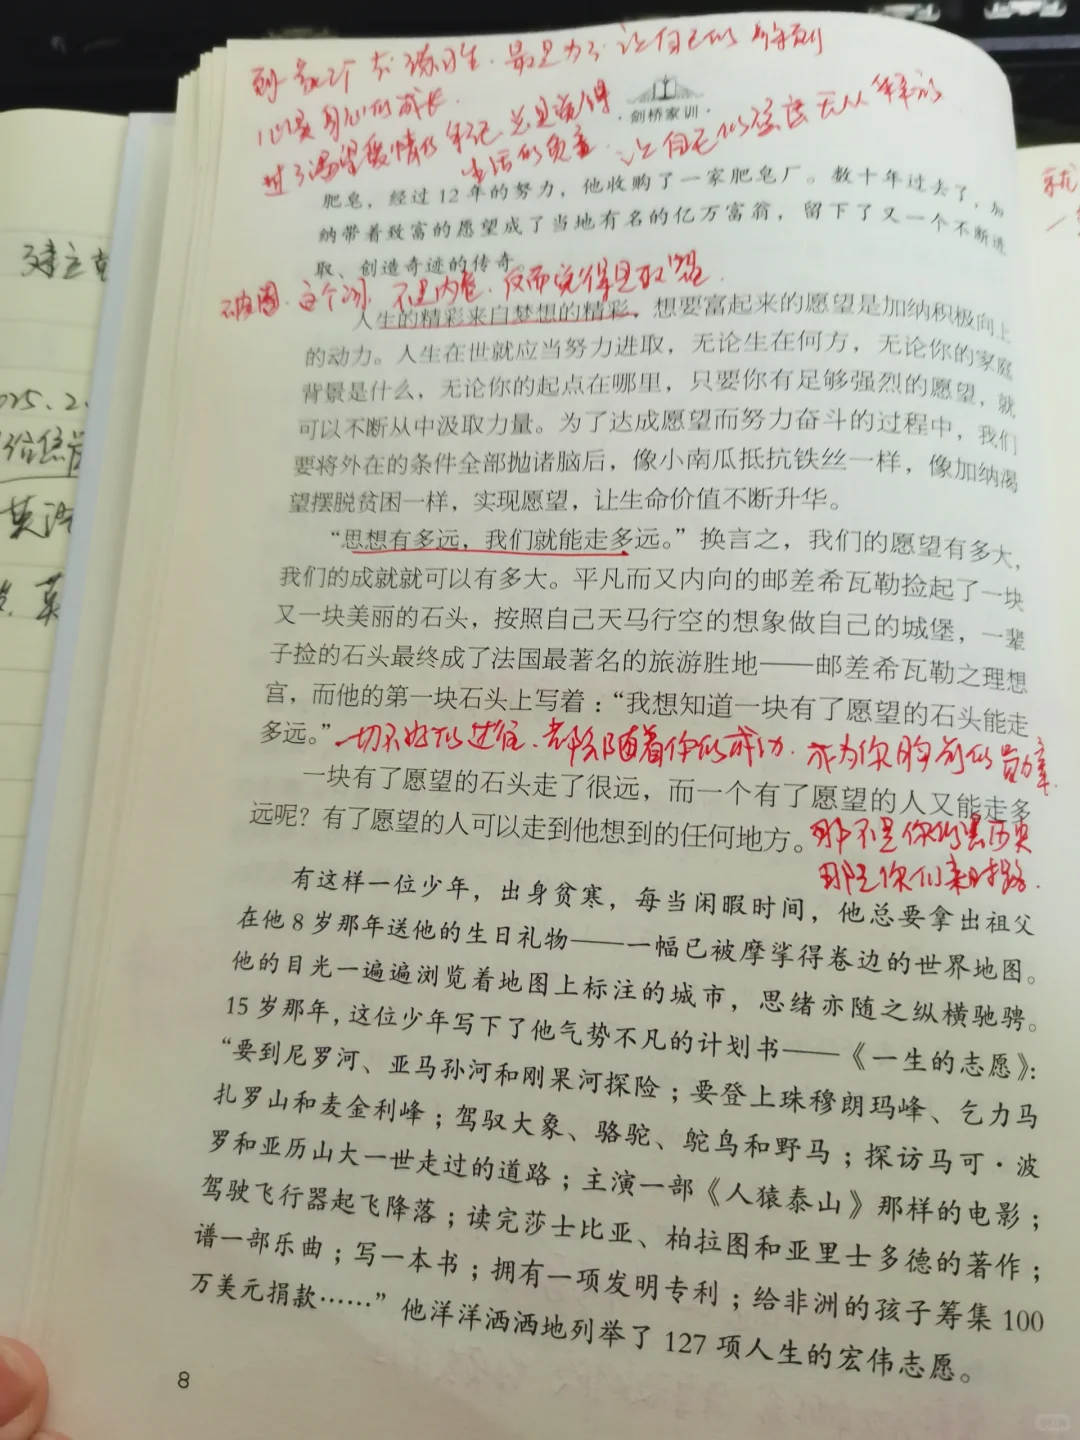 让自己的
剑桥家训
肥皂，经过12年的努力，他收购了一家肥皂厂。数十年过去了，加
纳带着致富的愿望成了当地有名的亿万富翁，留下了又一个不断进
取、创造奇迹的传奇。
人生的精彩来自梦想的精彩，想要富起来的愿望是加纳积极向上
的动力。人生在世就应当努力进取，无论生在何方，无论你的家庭
背景是什么，无论你的起点在哪里，只要你有足够强烈的愿望，就
可以不断从中汲取力量。为了达成愿望而努力奋斗的过程中，我们
要将外在的条件全部抛诸脑后，像小南瓜抵抗铁丝一样，像加纳渴
望摆脱贫困一样，实现愿望，让生命价值不断升华。
“思想有多远，我们就能走多远。”换言之，我们的愿望有多大，
我们的成就就可以有多大。平凡而又内向的邮差希瓦勒捡起了一块
又一块美丽的石头，按照自己天马行空的想象做自己的城堡，一辈
子捡的石头最终成了法国最著名的旅游胜地——邮差希瓦勒之理想
宫，而他的第一块石头上写着：“我想知道一块有了愿望的石头能走
多远。”一切不好的过往，都会随着你的成功，成为你胸前的勋章
一块有了愿望的石头走了很远，而一个有了愿望的人又能走多
远呢？有了愿望的人可以走到他想到的任何地方。那不是你的黑历史
那是你们来时路.
有这样一位少年，出身贫寒，每当闲暇时间，他总要拿出祖父
在他8岁那年送他的生日礼物——一幅已被摩挲得卷边的世界地图。
他的目光一遍遍浏览着地图上标注的城市，思绪亦随之纵横驰骋。
15岁那年，这位少年写下了他气势不凡的计划书——《一生的志愿》：
“要到尼罗河、亚马孙河和刚果河探险；要登上珠穆朗玛峰、乞力马
扎罗山和麦金利峰；驾驭大象、骆驼、鸵鸟和野马；探访马可·波
罗和亚历山大一世走过的道路；主演一部《人猿泰山》那样的电影；
驾驶飞行器起飞降落；读完莎士比亚、柏拉图和亚里士多德的著作；
谱一部乐曲；写一本书；拥有一项发明专利；给非洲的孩子筹集100
万美元捐款……”他洋洋洒洒地列举了127项人生的宏伟志愿。
8